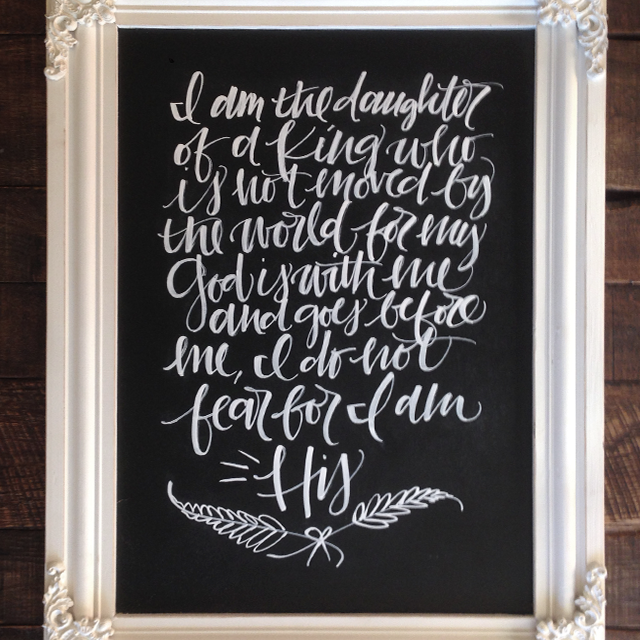 I am the daughter
of a King who
is not moved by
the world for my
God is with me
and goes before
me, I do not
fear for I am
His